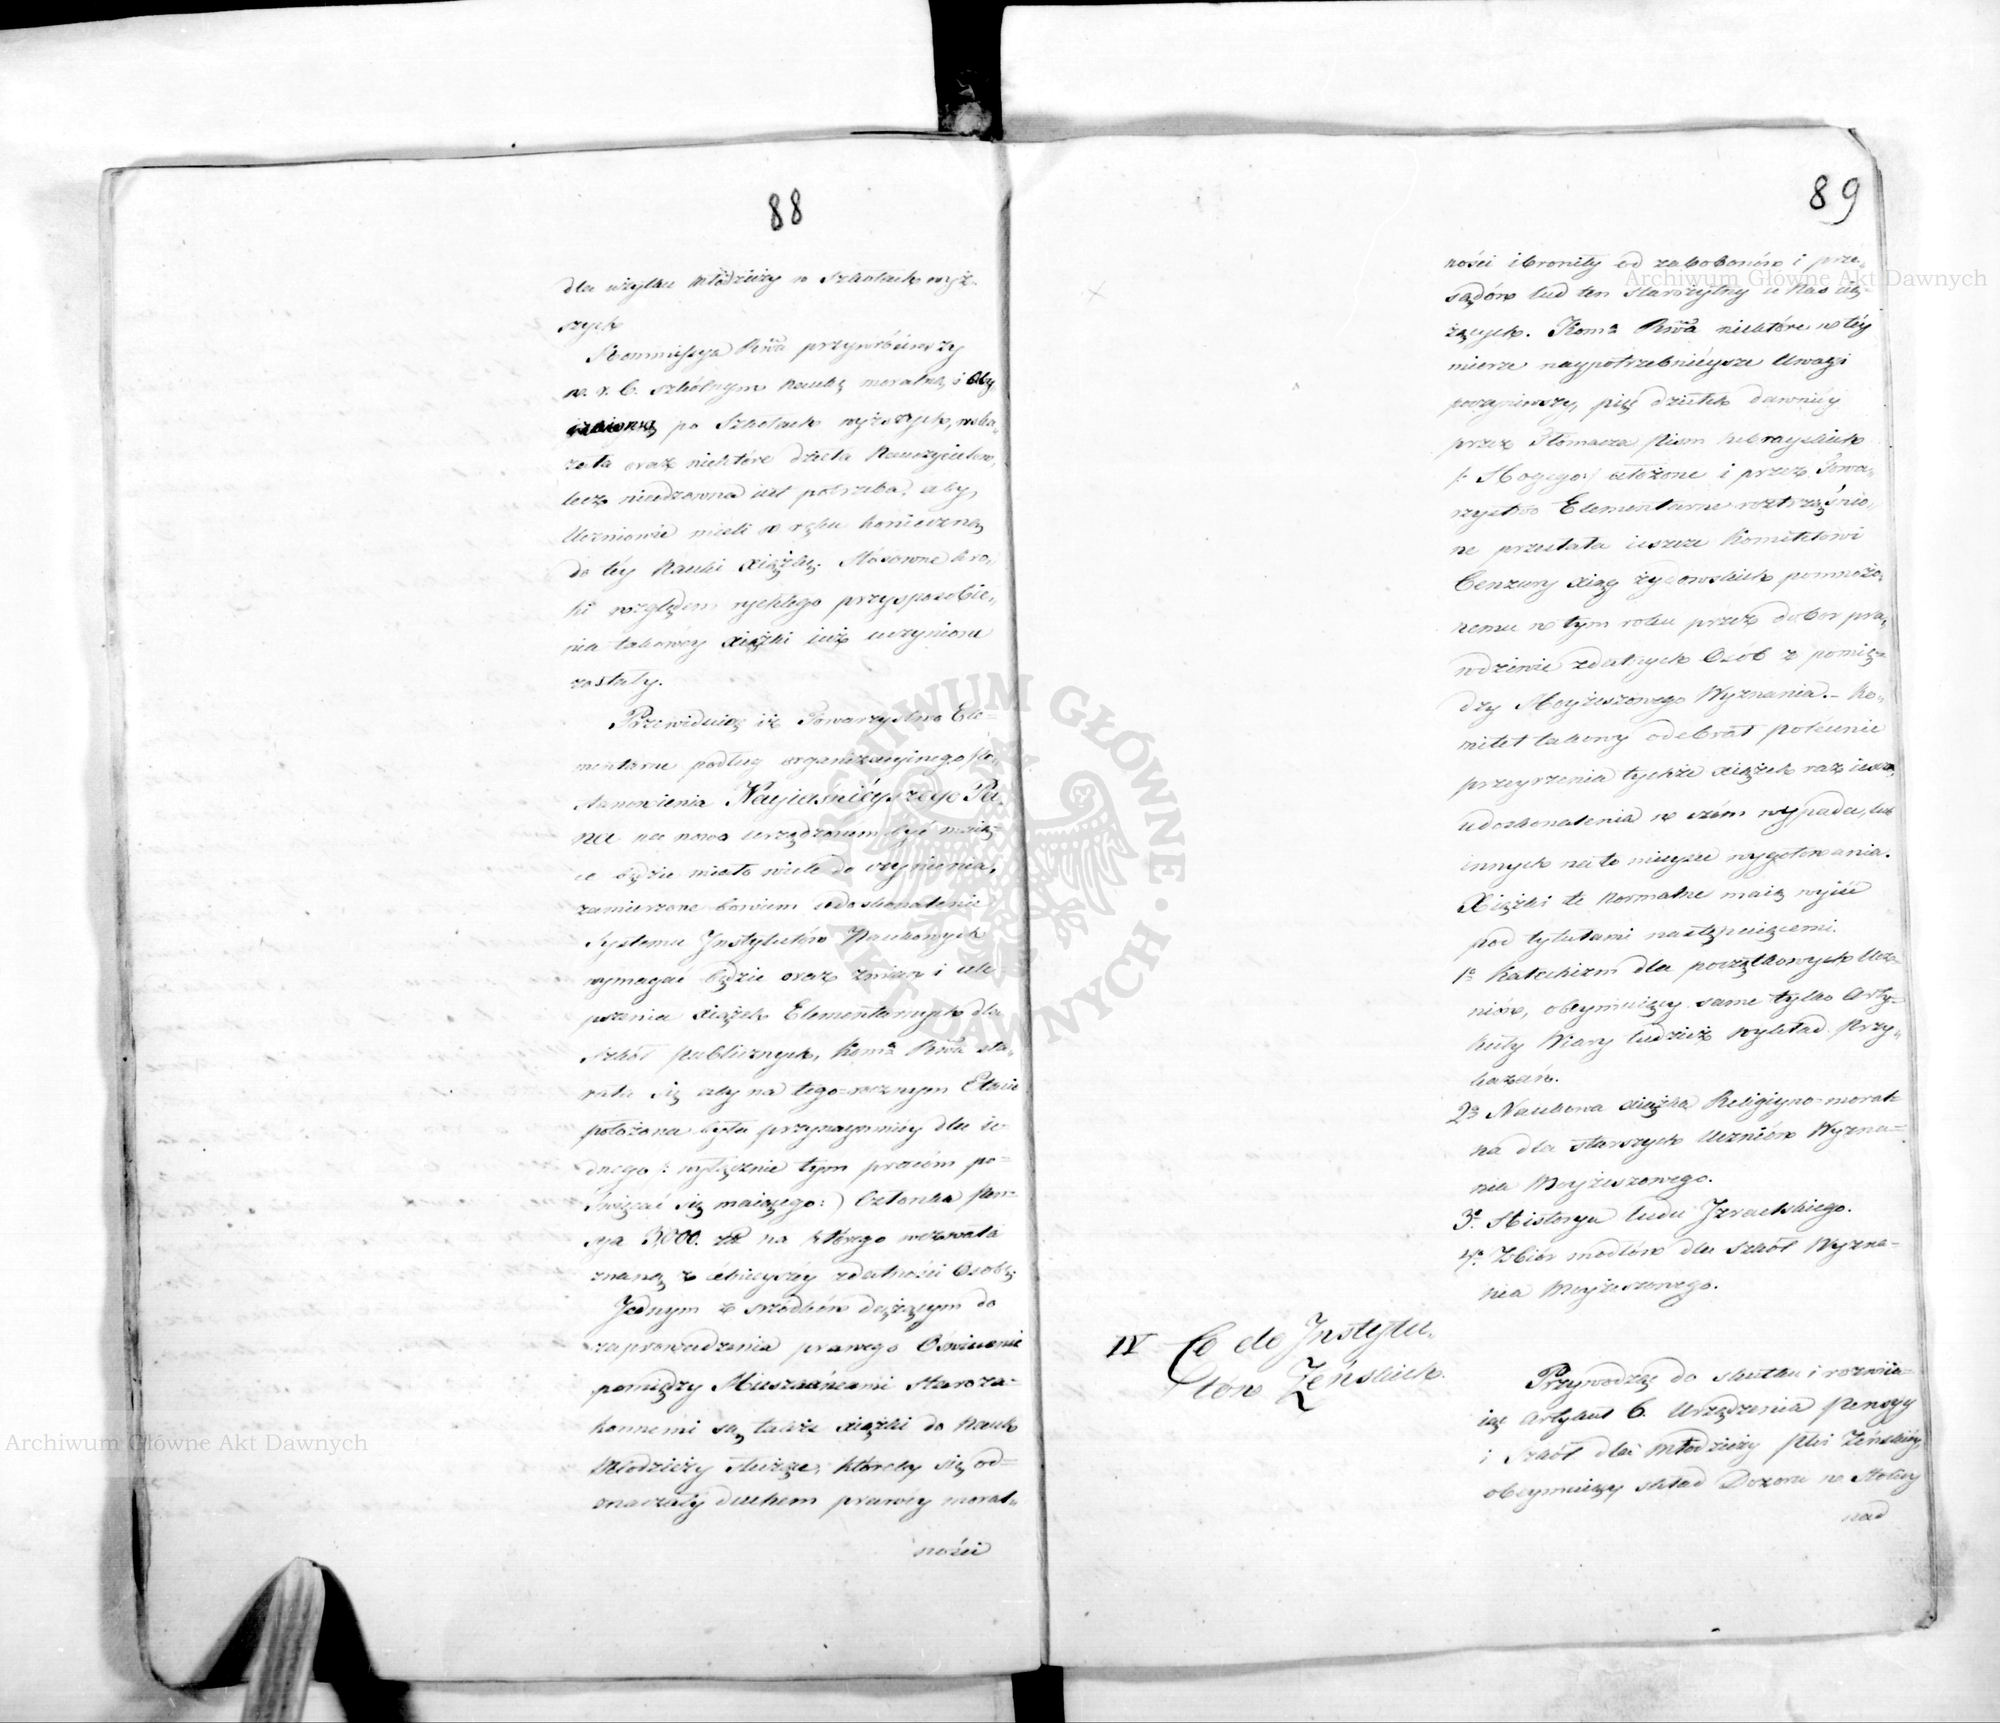 88
dla użytku Młodzieży w Szkołach wyż-
szych
Kommissya Rząwa przywróciwszy
w. r. b. szkólnym Naukę moralną i Oby
po Szkołach wyższych, wska-
zała oraz niektóre dzieła Nauczycielom,
lecz nieodzowna iest potrzeba, aby
Uczniowie mieli w ręku konieczną
do téy Nauki xiążkę. Stósowne kro-
ki względem rychłego przysposobie-
nia takowéy xiążki iuż uczynione
zostały.
Przewiduiąc iż Towarzystwo Ele-
mentarne podług organizacyinego Po-
stanowienia Nayiaśnieyszego Pa-
na na nowo urządzonem być maią-
ce będzie miało wiele do czynienia,
zamierzone bowiem udoskonalenie
Systemu Instytutów Naukowych
wymagać będzie oraz zmian i ule-
pszenia xiążek Elementarnych dla
Szkół publicznych, Komā Rwā sta-
rała się aby na tego-rocznym Etacie
położona była przynaymniéy dla ie-
dnego /: wyłącznie tym pracóm po-
święcać się maiącego :) Członka Pen-
sya 3,000. zł na którego wezwała
znaną z celuiącéy zdatności Osobę.
Jednym z srzodków dążącym do
zaprowadzenia prawego Oświecenia
pomiędzy Mieszkańcami Staroza-
konnemi są także xiążki do Nauk
Młodzieży służące, któreby się od-
znaczały duchem prawéy moral-
ności
89
ności i broniły od zabobonów i prze-
sądów lud ten starożytny u Nas cią-
żących. Komā Rwā niektóre w téy
mierze naypotrzebnieysze Uwagi
poczyniwszy, pięć dziełek dawniéy
przez Tłómacza Pism hebrayskich
/: Hogego :/ ułożone i przez Towa-
rzystwo Elementarne roztrząśnio-
ne przesłała ieszcze Komitetowi
Cenzury xiąg żydowskich pomnożo-
nemu w tym roku przez dobor pra-
wdziwie zdatnych Osób z pomię-
dzy Moyżeszowego Wyznania. – Ko-
mitet takowy odebrał polecenie
przeyrzenia tychże xiążek raz ieszcze,
udoskonalenia w czém wypada, lub
innych na to mieysce wygotowania.
Xiążki te Normalne maią wyiść
pod tytułami następuiącemi.
1º Katechizm dla początkowych Ucz-
niów, obeymuiący same tylko Arty-
kuły Wiary tudzież wykład Przy-
kazań.
2º Naukowa xiążka Religiyno-moral-
na dla starszych Uczniów Wyzna-
nia Moyżeszowego.
3º Historya ludu Izraelskiego.
4º Zbiór modłów dla Szkół Wyzna-
nia Moyżeszowego.
IV Co do Instytu-
tów Żeńskich.
Przywodząc do skutku i rozwiia-
iąc Artykuł 6. Urządzenia Pensyy
i Szkół dla Młodzieży płci Żeńskiéy
obeymuiący skład Dozoru w Stolicy
nad
Archiwum Główne Akt Dawnych
Archiwum Główne Akt Dawnych
ARCHIWUM GŁÓWNE AKT DAWNYCH